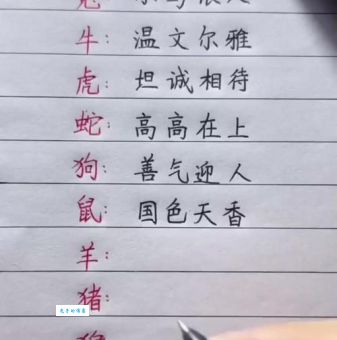 牛: 温文尔雅
虎: 坦诚相待
蛇: 高高在上
狗: 善气迎人
鼠: 国色天香
羊:
猪: